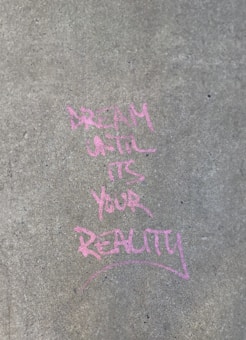 DREAM
until
ITS
YOUR
REALITY